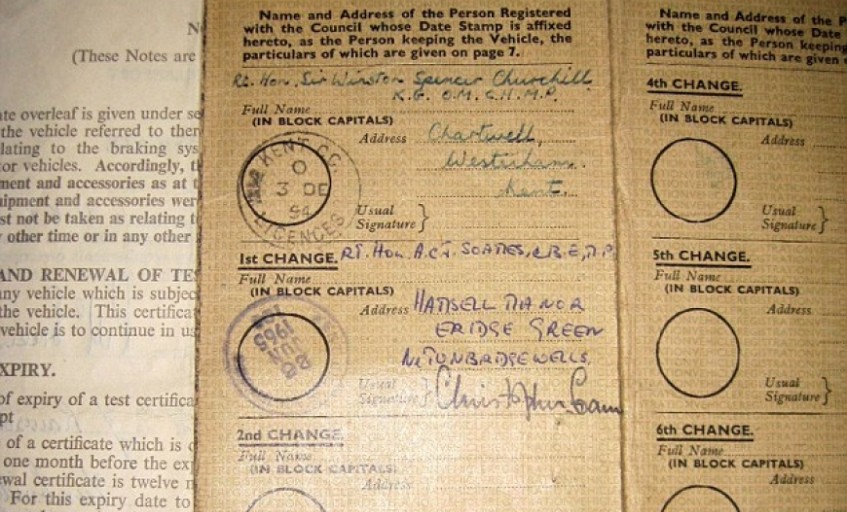 N
(These Notes are
te overleaf is given under se
the vehicle referred to ther
lating to the braking sys
or vehicles. Accordingly, t
ment and accessories as at t
uipment and accessories wer
st not be taken as relating t
other time or in any other
AND RENEWAL OF TES
any vehicle which is subjec
the vehicle. This certifica
vehicle is to continue in us
XPIRY.
of expiry of a test certifica
pt
of a certificate which is
one month before the ex
wal certificate is twelve
For this expiry date to
Name and Address of the Person Registered
with the Council whose Date Stamp is affixed
hereto, as the Person keeping the Vehicle, the
particulars of which are given on page 7.
Rt. Hon. Sir Winston Spencer Churchill
K.G. O.M. C.H. M.P.
Full Name
(IN BLOCK CAPITALS)
Address Chartwell,
Westerham.
Kent.
KENT C.C.
3 DE
LICENCES
Usual
Signature }
1st CHANGE. RT. HON. A.C.J. SOAMES, C.B.E, M.P.
Full Name
(IN BLOCK CAPITALS)
Address HAMSELL MANOR
ERIDGE GREEN
Nr TUNBRIDGE WELLS.
1965
Usual
Signature } Christopher Soames
2nd CHANGE.
Full Name
(IN BLOCK CAPITALS)
Address
Name and Address of the P
with the Council whose Date
hereto, as the Person keeping
particulars of which are given
4th CHANGE.
Full Name
(IN BLOCK CAPITALS)
Address
Usual
Signature }
5th CHANGE.
Full Name
(IN BLOCK CAPITALS)
Address
Usual
Signature }
6th CHANGE.
Full Name
(IN BLOCK CAPITALS)
Address